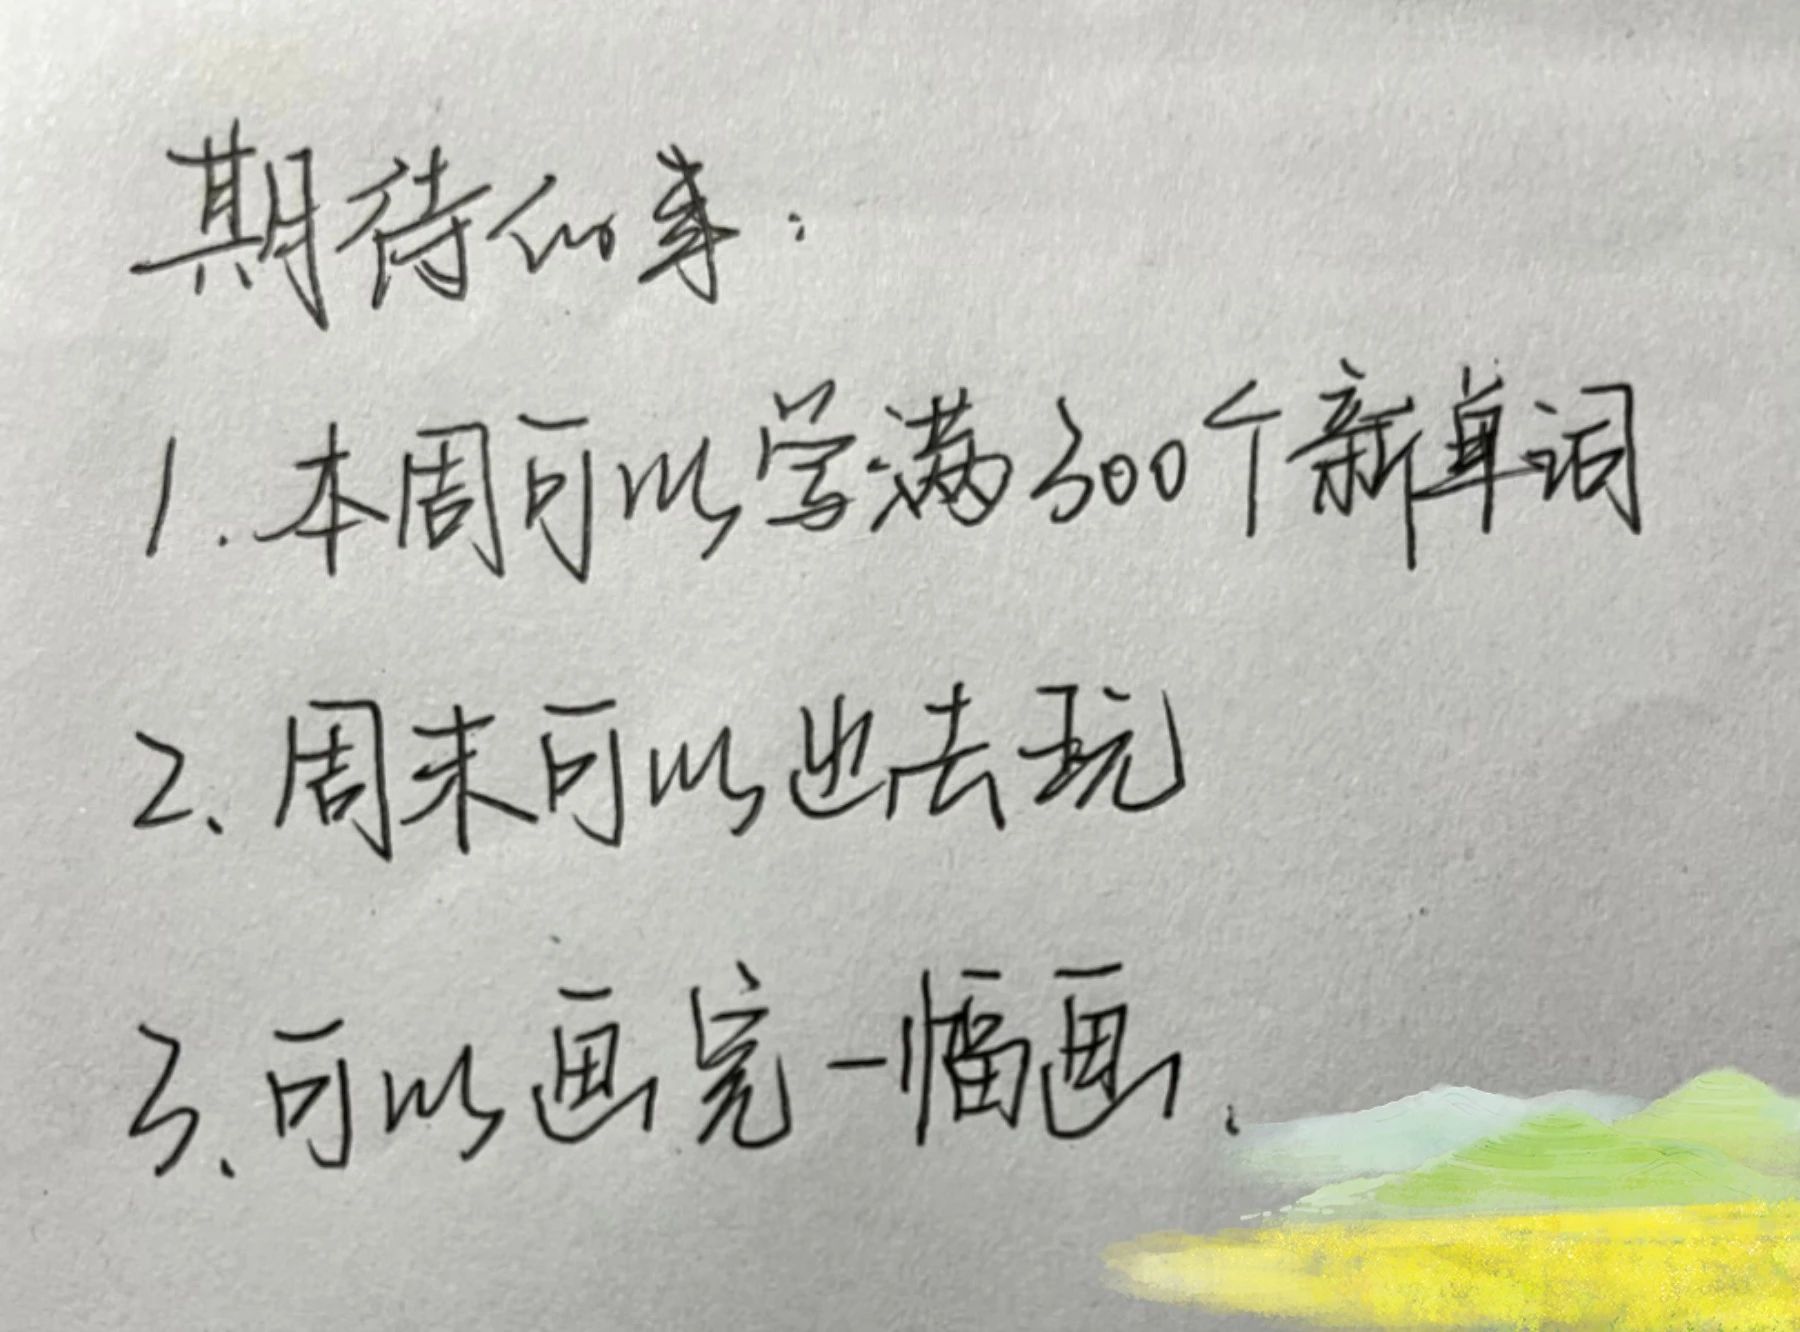 期待的事：
1.本周可以学满300个新单词
2、周末可以出去玩
3、可以画完一幅画.